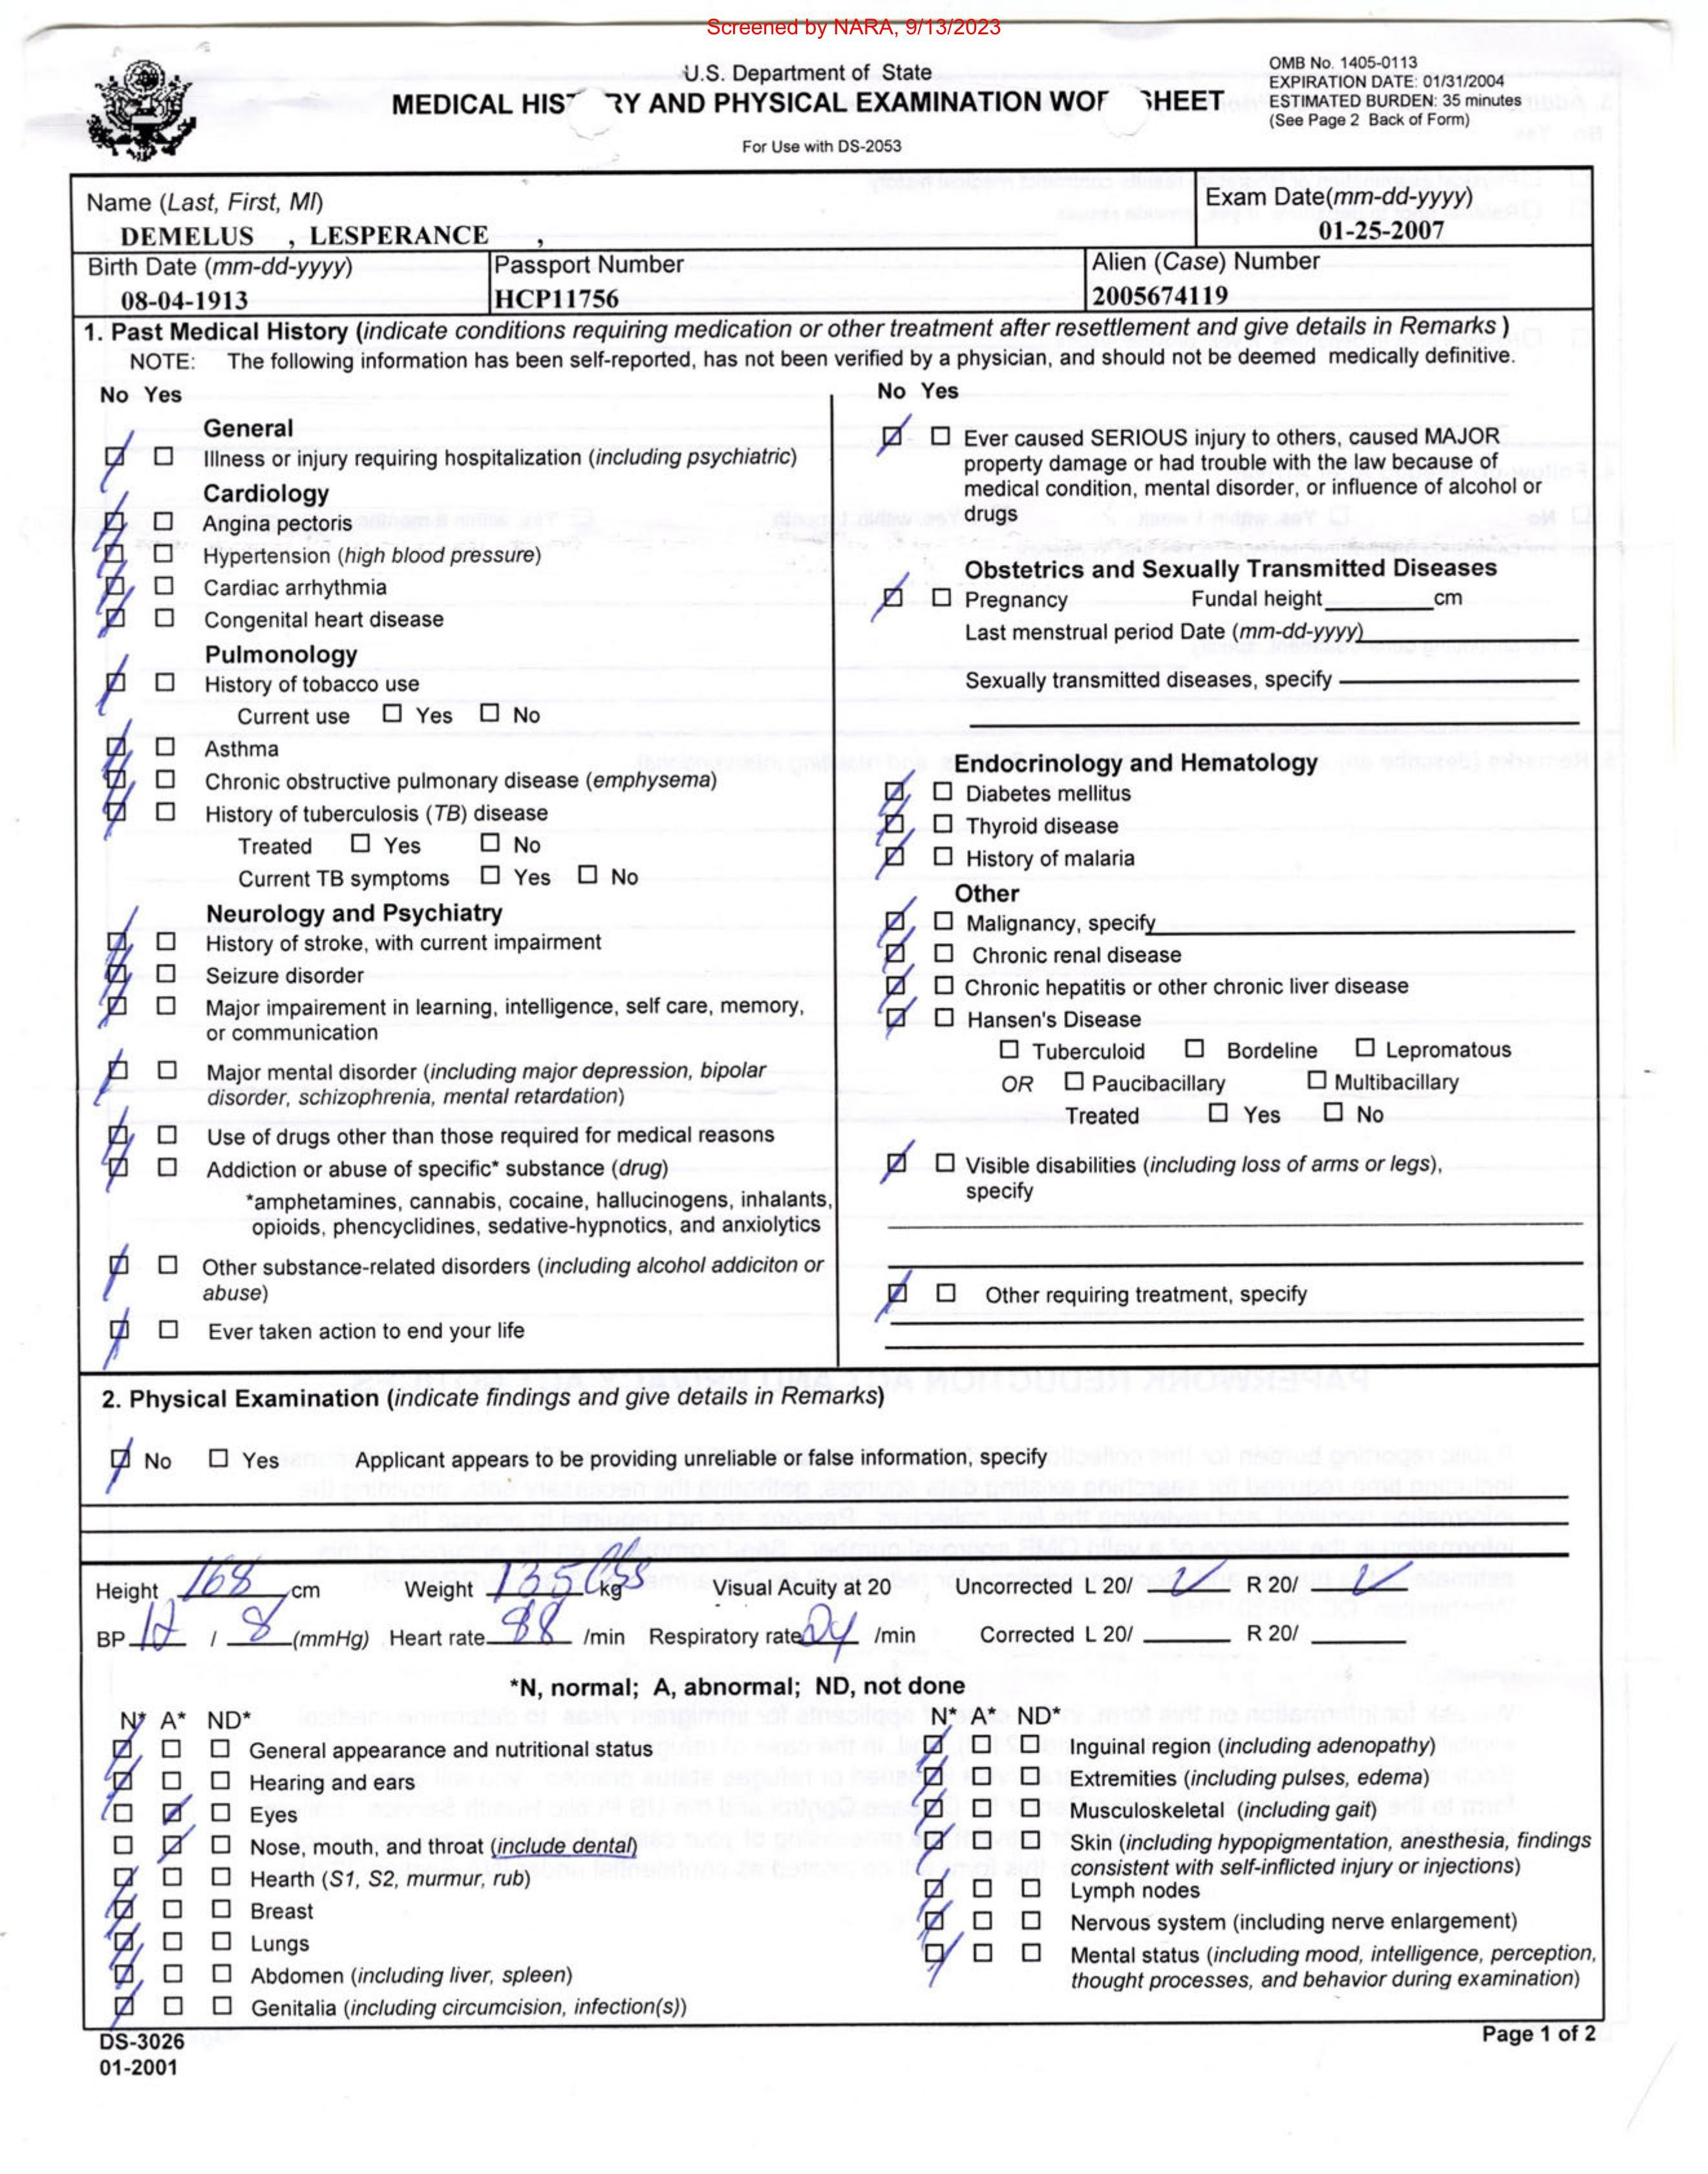 Screened by NARA, 9/13/2023
U.S. Department of State
MEDICAL HIS RY AND PHYSICAL EXAMINATION WOR SHEET
For Use with DS-2053
OMB No. 1405-0113
EXPIRATION DATE: 01/31/2004
ESTIMATED BURDEN: 35 minutes
(See Page 2 Back of Form)
Name (Last, First, MI)
DEMELUS , LESPERANCE ,
Exam Date(mm-dd-yyyy)
01-25-2007
Birth Date (mm-dd-yyyy)
08-04-1913
Passport Number
HCP11756
Alien (Case) Number
2005674119
1. Past Medical History (indicate conditions requiring medication or other treatment after resettlement and give details in Remarks )
NOTE: The following information has been self-reported, has not been verified by a physician, and should not be deemed medically definitive.
No Yes
General
Illness or injury requiring hospitalization (including psychiatric)
Cardiology
Angina pectoris
Hypertension (high blood pressure)
Cardiac arrhythmia
Congenital heart disease
Pulmonology
History of tobacco use
Current use Yes No
Asthma
Chronic obstructive pulmonary disease (emphysema)
History of tuberculosis (TB) disease
Treated Yes No
Current TB symptoms Yes No
Neurology and Psychiatry
History of stroke, with current impairment
Seizure disorder
Major impairement in learning, intelligence, self care, memory,
or communication
Major mental disorder (including major depression, bipolar
disorder, schizophrenia, mental retardation)
Use of drugs other than those required for medical reasons
Addiction or abuse of specific* substance (drug)
*amphetamines, cannabis, cocaine, hallucinogens, inhalants,
opioids, phencyclidines, sedative-hypnotics, and anxiolytics
Other substance-related disorders (including alcohol addiciton or
abuse)
Ever taken action to end your life
No Yes
Ever caused SERIOUS injury to others, caused MAJOR
property damage or had trouble with the law because of
medical condition, mental disorder, or influence of alcohol or
drugs
Obstetrics and Sexually Transmitted Diseases
Pregnancy Fundal height cm
Last menstrual period Date (mm-dd-yyyy)
Sexually transmitted diseases, specify
Endocrinology and Hematology
Diabetes mellitus
Thyroid disease
History of malaria
Other
Malignancy, specify
Chronic renal disease
Chronic hepatitis or other chronic liver disease
Hansen's Disease
Tuberculoid Bordeline Lepromatous
OR Paucibacillary Multibacillary
Treated Yes No
Visible disabilities (including loss of arms or legs),
specify
Other requiring treatment, specify
2. Physical Examination (indicate findings and give details in Remarks)
No Yes Applicant appears to be providing unreliable or false information, specify
Height 168 cm Weight 135 lbs kg Visual Acuity at 20 Uncorrected L 20/ R 20/
BP 12 / 8 (mmHg) Heart rate 88 /min Respiratory rate 24 /min Corrected L 20/ R 20/
*N, normal; A, abnormal; ND, not done
N* A* ND*
General appearance and nutritional status
Hearing and ears
Eyes
Nose, mouth, and throat (include dental)
Hearth (S1, S2, murmur, rub)
Breast
Lungs
Abdomen (including liver, spleen)
Genitalia (including circumcision, infection(s))
N* A* ND*
Inguinal region (including adenopathy)
Extremities (including pulses, edema)
Musculoskeletal (including gait)
Skin (including hypopigmentation, anesthesia, findings
consistent with self-inflicted injury or injections)
Lymph nodes
Nervous system (including nerve enlargement)
Mental status (including mood, intelligence, perception,
thought processes, and behavior during examination)
DS-3026
01-2001
Page 1 of 2